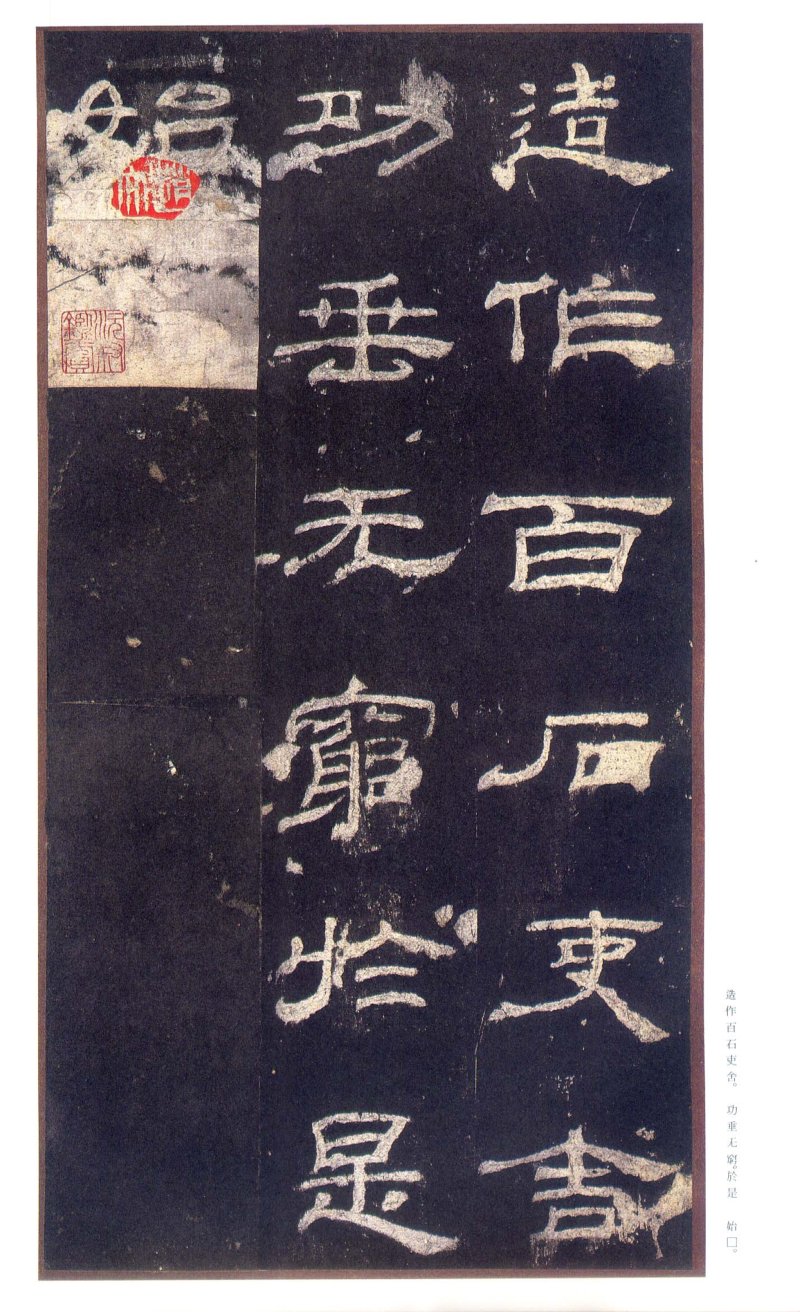 造作百石吏舍
功垂无窮於是
始
造作百石吏舍。 功垂无窮。於是 始□。